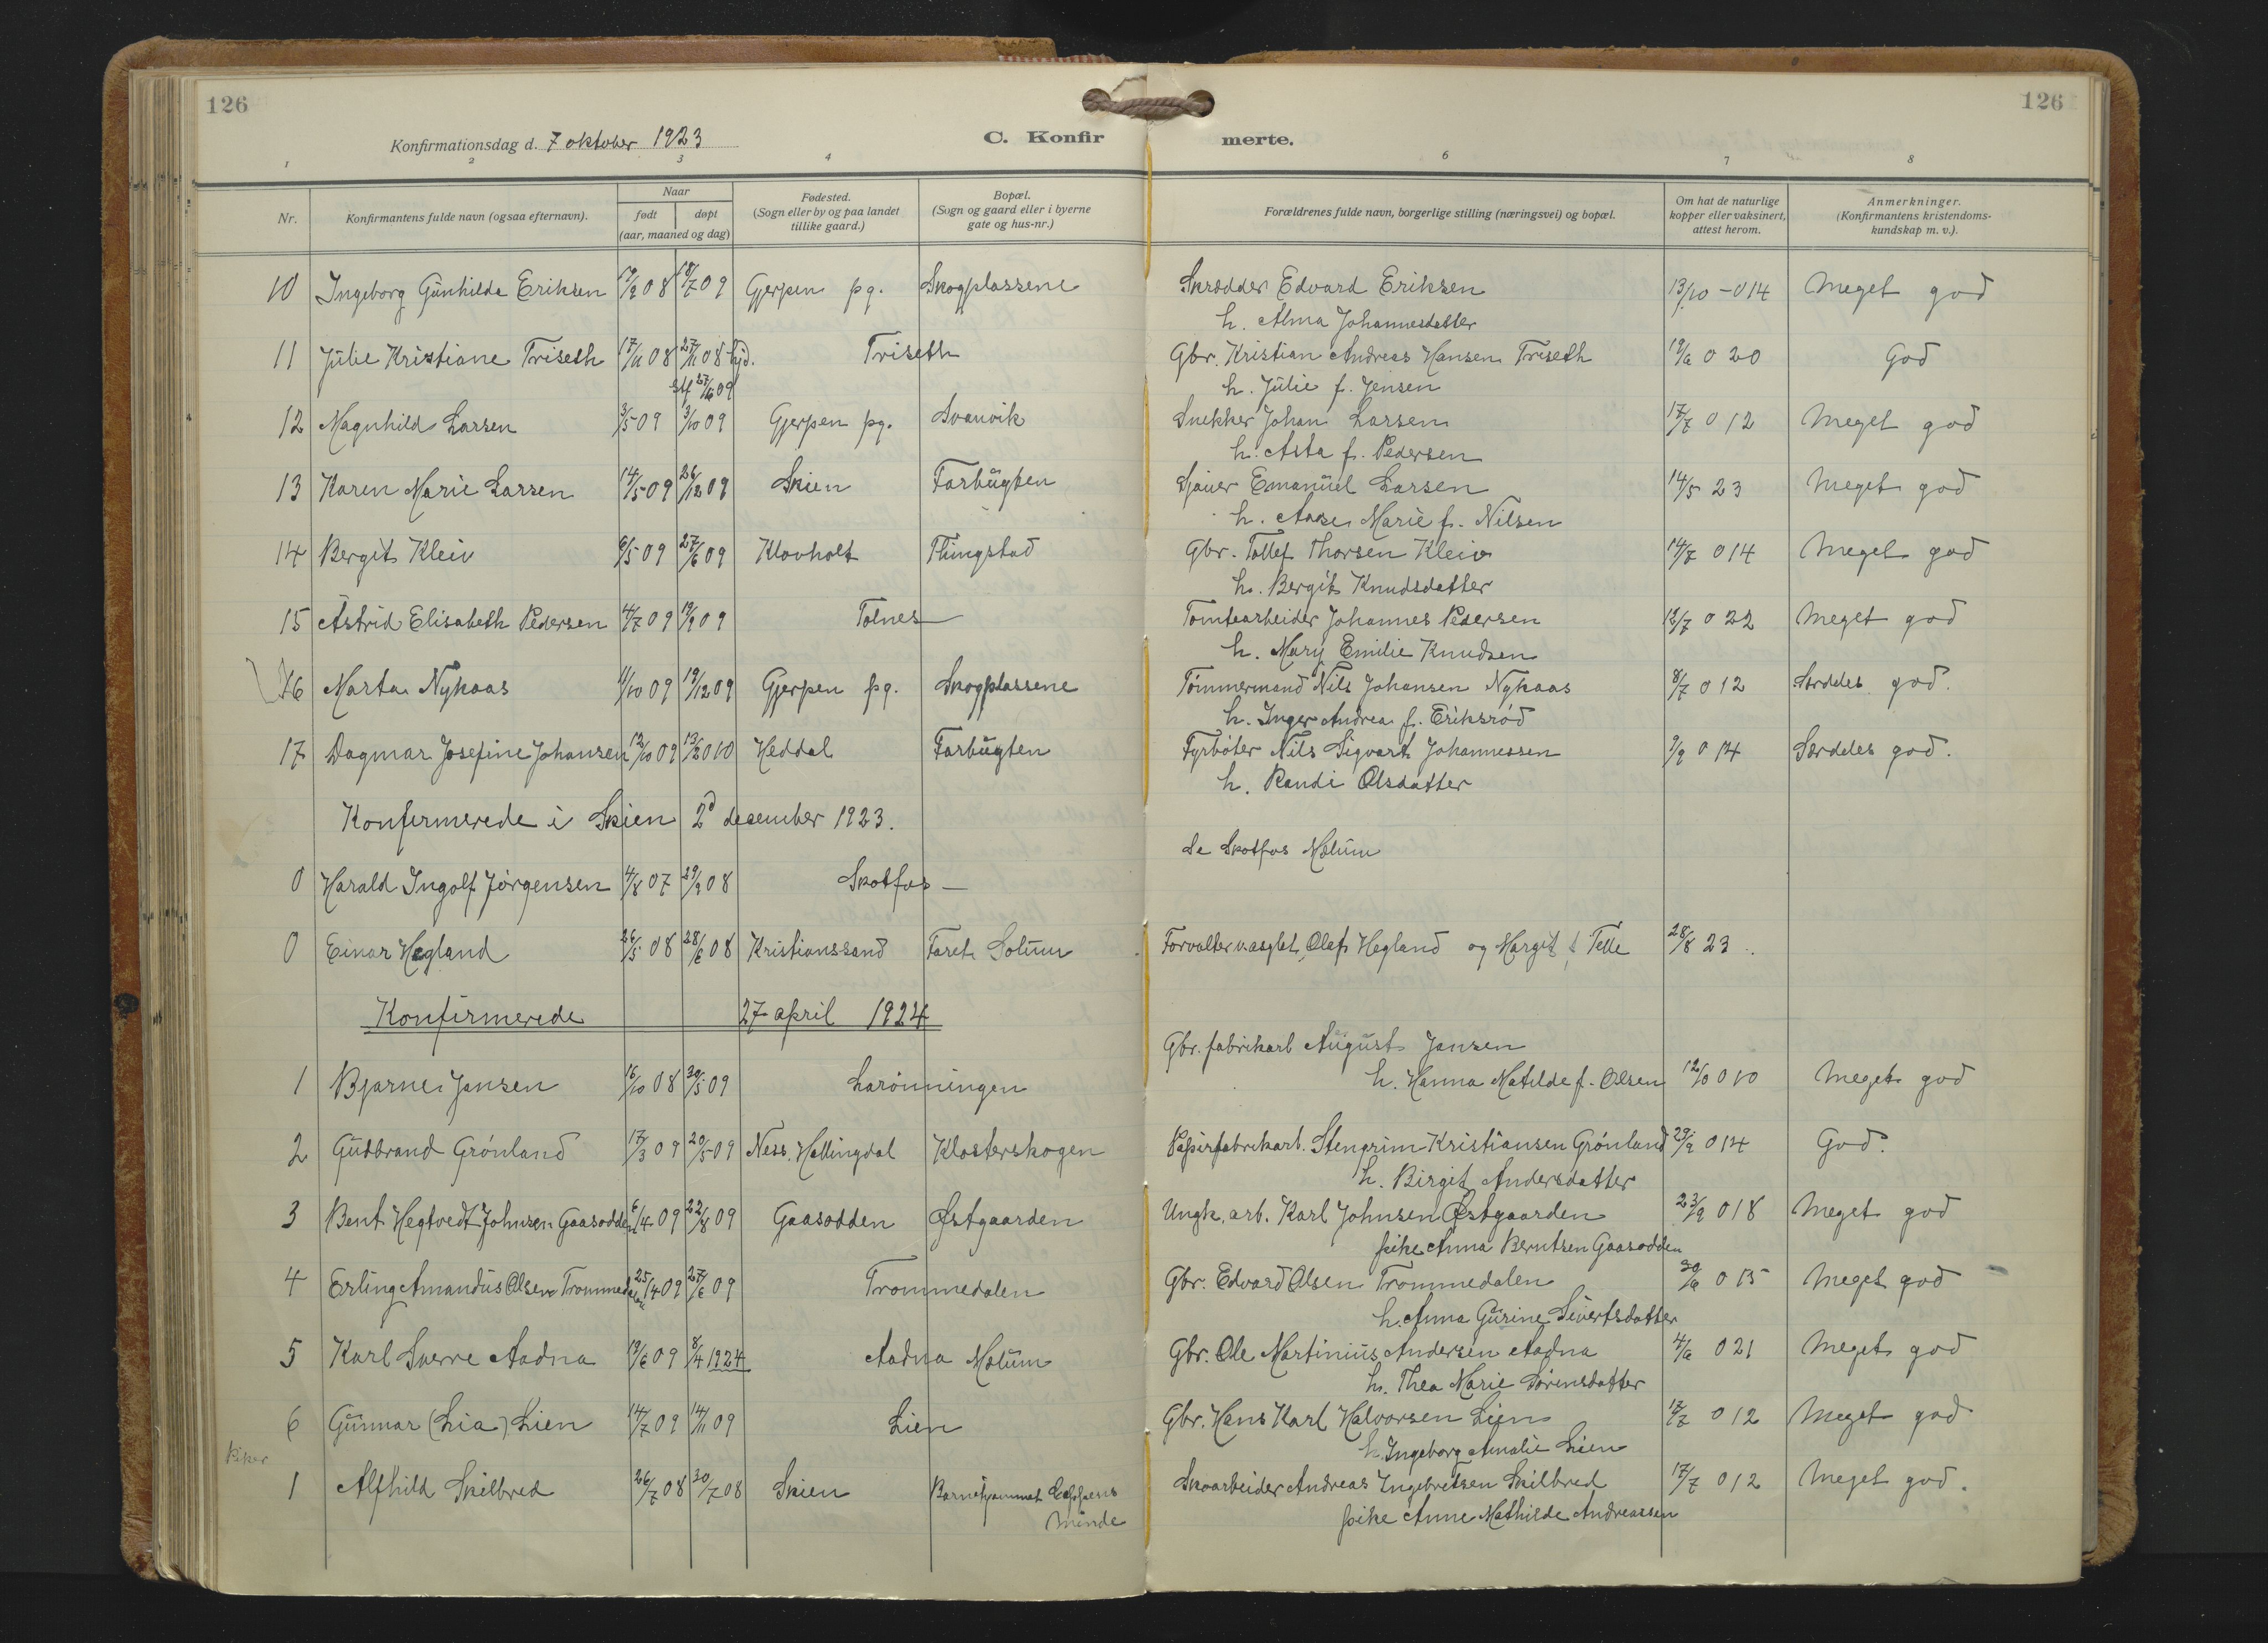 126
126
Konfirmationsdag d. 7 oktober 1923
C. Konfir merte.
1 2 3 4 6 7 8
Nr. Konfirmantens fulde navn (ogsaa efternavn). Naar født døpt (aar, maaned og dag) Fødested. (Sogn eller by og paa landet tillike gaard.) Bopæl. (Sogn og gaard eller i byerne gate og hus-nr.) Forældrenes fulde navn, borgerlige stilling (næringsvei) og bopæl. Om hat de naturlige kopper eller vaksinert, attest herom. Anmerkninger. (Konfirmantens kristendoms-kundskap m. v.).
10 Ingeborg Gunhilde Eriksen 08 18/7 09 Gjerpen pg. Skogplassene Skrædder Edvard Eriksen 13/10 - 014 Meget god
h. Alma Johannesdatter
11 Julie Kristiane Triseth 17/11 08 27/11 08 hjd. Triseth Gbr. Kristian Andreas Hansen Triseth 19/6 020 God
Stf 27/6 09 h. Julie f. Jensen
12 Magnhild Larsen 3/5 09 3/10 09 Gjerpen pg. Svanvik Snekker Johan Larsen 17/7 012 Meget god
h. Asta f. Pedersen
13 Karen Marie Larsen 14/5 09 26/12 09 Skien Farbugten Sjauer Emanuel Larsen 14/5 23 Meget god
h. Aase Marie f. Nilsen
14 Bergit Kleiv 6/5 09 27/6 09 Klovholt Thingstad Gbr. Tollef Thorsen Kleiv 14/7 014 Meget god
h. Bergit Knudsdatter
15 Astrid Elisabeth Pedersen 4/7 09 19/9 09 Tolnes Tomtearbeider Johannes Pedersen 12/7 022 Meget god
h. Mary Emilie Knudsen
16 Marta Nykaas 11/10 09 19/12 09 Gjerpen pg. Skogplassene Tømmermand Nils Johansen Nykaas 8/7 012 Særdeles god.
h. Inger Andrea f. Eriksrød
17 Dagmar Josefine Johansen 12/10 09 13/2 010 Heddal Farbugten Fyrbøter Nils Sigvart Johannessen 9/9 014 Særdeles god.
h. Randi Olsdatter
Konfirmerede i Skien 2d desember 1923.
Se Skotfos Melum
0 Harald Ingolf Jørgensen 4/8 07 29/3 08 Skotfos —
0 Einar Hegland 26/5 08 28/6 08 Kristianssand Faret Solum Forvalter Olaf Hegland og Margit f Telle 28/8 23.
Konfirmerede 27 april 1924
Gbr. fabrikarb August Jansen
1 Bjarne Jansen 16/10 08 30/5 09 Larønningen h. Hanna Matilde f. Olsen 12/10 010 Meget god
2 Gudbrand Grønland 17/3 09 20/5 09 Ness. Hallingdal Klosterskogen Papirfabrikarb. Stengrim Kristiansen Grønland 29/9 014 God.
h. Birgit Andersdatter
3 Bent Hegtvedt Johnsen Gaasodden 6/4 09 22/8 09 Gaasodden Østgaarden Ungk. arb. Karl Johnsen Østgaarden 23/9 018 Meget god
pike Anna Berntsen Gaasodden
4 Erling Amandus Olsen Trommedalen 25/4 09 27/6 09 Trommedalen Gbr. Edvard Olsen Trommedalen 30/6 015 Meget god
h. Anna Gurine Sivertsdatter
5 Karl Sverre Aadna 19/6 09 8/4 1924 Aadna Melum Gbr. Ole Martinius Andersen Aadna 4/6 021 Meget god
h. Thea Marie Sørensdatter
6 Gunnar (Lia) Lien 14/7 09 14/11 09 Lien Gbr. Hans Karl Halvorsen Lien 17/7 012 Meget god
h. Ingeborg Amalie Lien
Piker
1 Alfhild Skilbred 26/7 08 30/7 08 Skien Barnehjemmet Cappelens Minde Skoarbeider Andreas Ingebretsen Skilbred 17/7 012 Meget god.
pike Anne Mathilde Andreassen